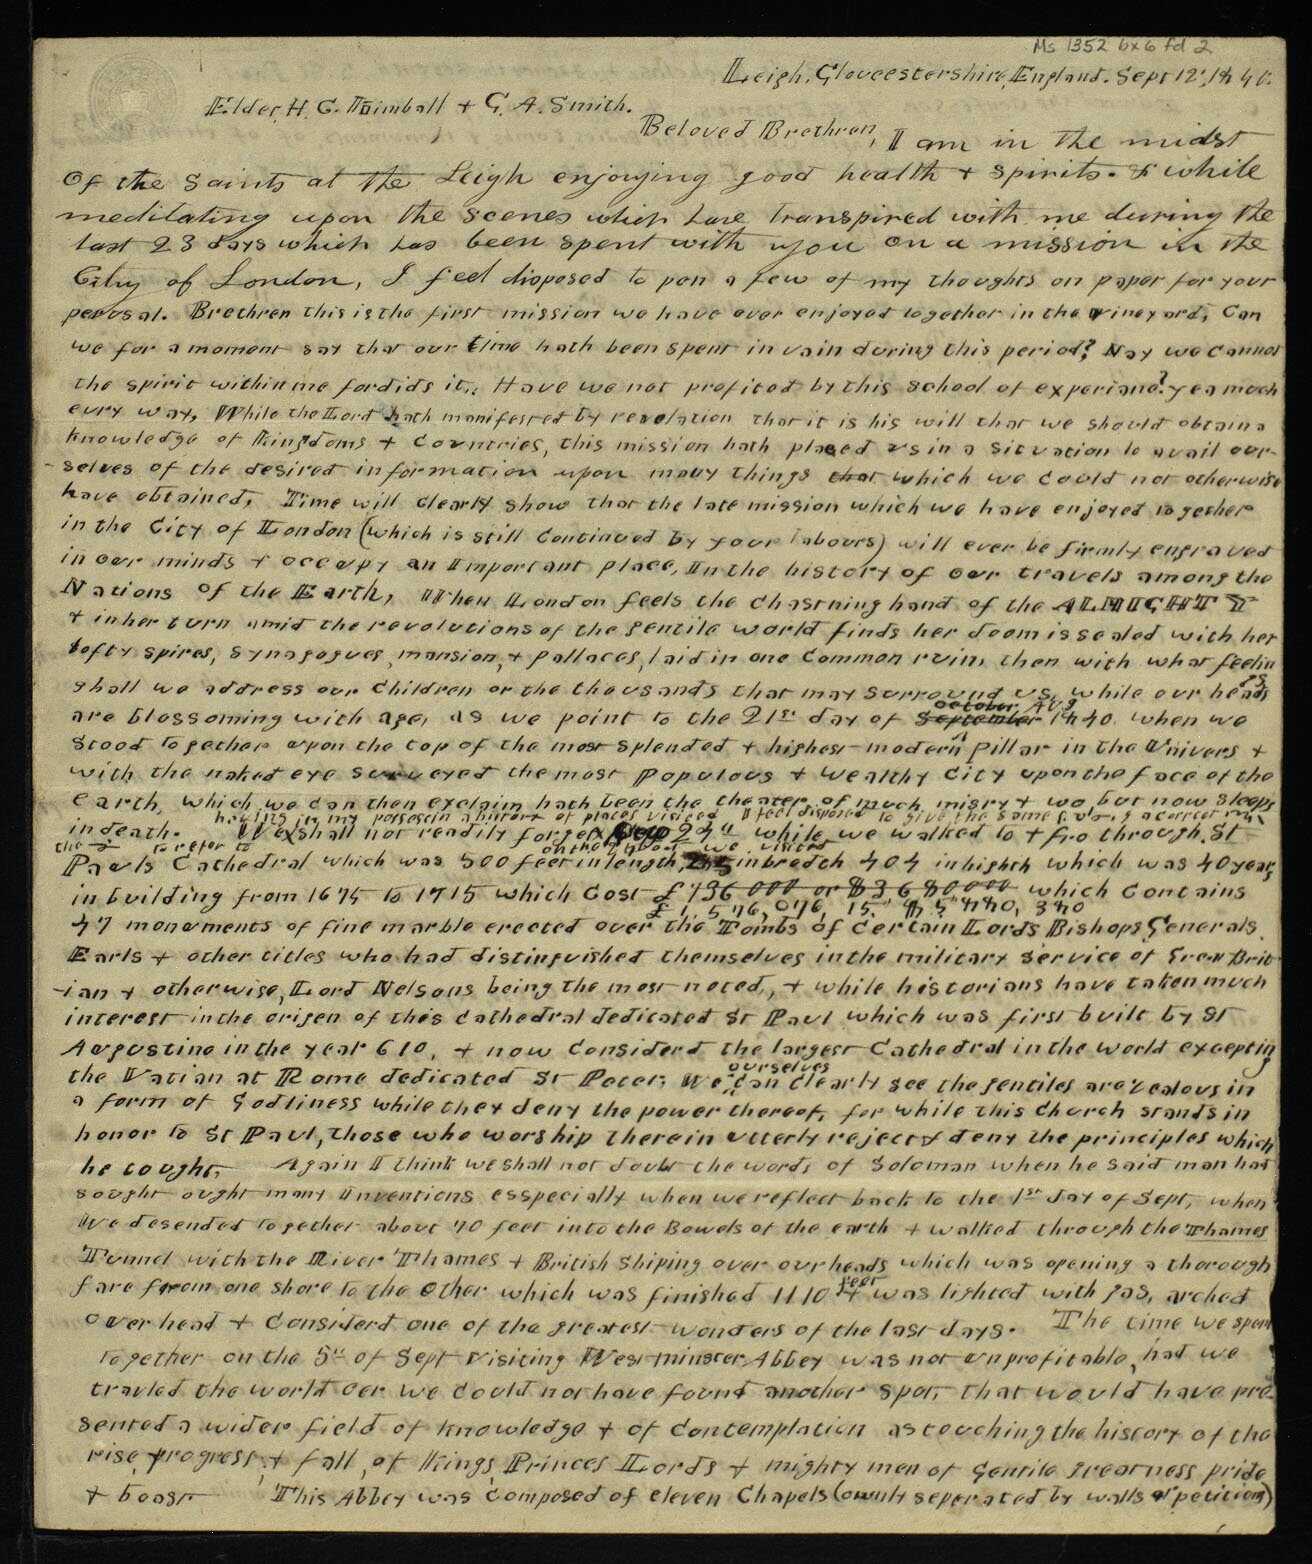 Ms 1352 bx6 fd 2
Leigh, Gloucestershire, England. Sept 12, 1840.
Elder, H. C. Kimball + G. A. Smith.
Beloved Brethren, I am in the midst
of the Saints at the Leigh enjoying good health + spirits. & while
meditating upon the scenes which have transpired with me during the
last 23 days which has been spent with you on a mission in the
City of London, I feel disposed to pen a few of my thoughts on paper for your
peousal. Brethren this is the first mission we have ever enjoyed together in the vineyard, Can
we for a moment say that our time hath been spent in vain during this period? Nay we cannot
the spirit within me fordids it. Have we not profited by this school of experiance? yea much
evry way, While the Lord hath manifested by revolation that it is his will that we should obtain a
knowledge of kingdoms + countries, this mission hath placed us in a situation to avail our-
-selves of the desired information upon many things that which we could not otherwise
have obtained, Time will clearly show that the late mission which we have enjoyed together
in the City of London (which is still continued by your labours) will ever be firmly engraved
in our minds + occupy an important place, In the history of our travels among the
Nations of the Earth, When London feels the chastning hand of the ALMIGHTY
+ in her turn amid the revolutions of the gentile world finds her doom is sealed with her
lofty spires, synagogues, mansion, + pallaces, laid in one common ruin, then with what feelin
gs
shall we address our children or the thousands that may surround us, while our heads
october, Aug
are blossoming with age, as we point to the 21st day of September 1840. when we
stood together upon the top of the most splended + highest modern pillar in the Univers +
with the naked eye surveyed the most Populous + wealthy City upon the face of the
earth, which we can then exclaim hath been the theater of much misry + wo, but now sleeps
having in my possesein a history of places visited I feel disposed to give the same
in death. We shall not readily forget 24th while we walked to + fro through St
the to refer to on the we visited
Pauls Cathedral which was 500 feet in length, 285 in bredth 404 in highth which was 40 years
in building from 1675 to 1715 which Cost £736 000 or $3680000 which contains
£ 1,576,076, 15. $ 5"880, 380
47 monuments of fine marble erected over the Tombs of certain Lords Bishops Generals.
Earls + other titles who had distinguished themselves in the military service of Great Brit
-ian + otherwise, Lord Nelsons being the most noted, + while historians have taken much
interest in the origen of this cathedral dedicated St Paul which was first built by St
Augustine in the year 610, + now considerd the largest Cathedral in the world excepting
ourselves
the Vatian at Rome dedicated St Peter, We can clearly see the gentiles are zealous in
a form of Godliness while they deny the power thereof, for while this church stands in
honor to St Paul, those who worship therein utterly reject & deny the principles which
he tought. Again I think we shall not doubt the words of Soloman when he said man had
sought ought many inventions esspecially when we reflect back to the 1st day of Sept, when
We desended together about 70 feet into the Bowels of the earth + walked through the Thames
Tunnel with the River Thames + British Shiping over our heads which was opening a thorough
feet
fare from one shore to the other which was finished 1110 + was lighted with gas, arched
over head + considerd one of the greatest wonders of the last days. The time we spent
together on the 5th of Sept visiting Westminster Abbey was not unprofitable, had we
travled the world oer we could not have found another spot, that would have pre-
sented a wider field of knowledge + of contemplation as touching the history of the
rise, progress, + fall, of Kings Princes Lords + mighty men of Gentile greatness pride
+ boast This Abbey was composed of eleven Chapels (ownly seperated by walls or petitions)